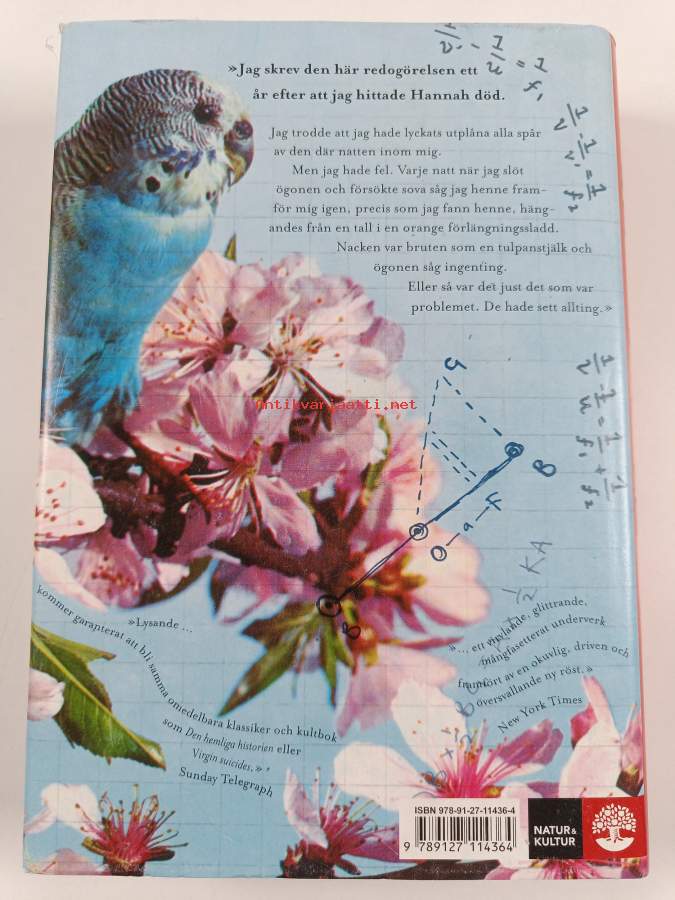 »Jag skrev den här redogörelsen ett
år efter att jag hittade Hannah död.
Jag trodde att jag hade lyckats utplåna alla spår
av den där natten inom mig.
Men jag hade fel. Varje natt när jag slöt
ögonen och försökte sova såg jag henne fram-
för mig igen, precis som jag fann henne, häng-
andes från en tall i en orange förlängningssladd.
Nacken var bruten som en tulpanstjälk och
ögonen såg ingenting.
Eller så var det just det som var
problemet. De hade sett allting.»
Antikvariaatti.net
»Lysande ...
kommer garanterat att bli
samma omedelbara klassiker och kultbok
som Den hemliga historien eller
Virgin suicides.»
Sunday Telegraph
»... ett virvlande, glittrande,
mångfasetterat underverk
framfört av en okuvlig, driven och
översvallande ny röst.»
New York Times
1/v' - 1/u = 1/f1
1/v - 1/v' = 1/f2
1/v - 1/u = 1/f1 + 1/f2
G
B
O–a–f
B
1/2 KA
ISBN 978-91-27-11436-4
9 789127 114364
NATUR&
KULTUR